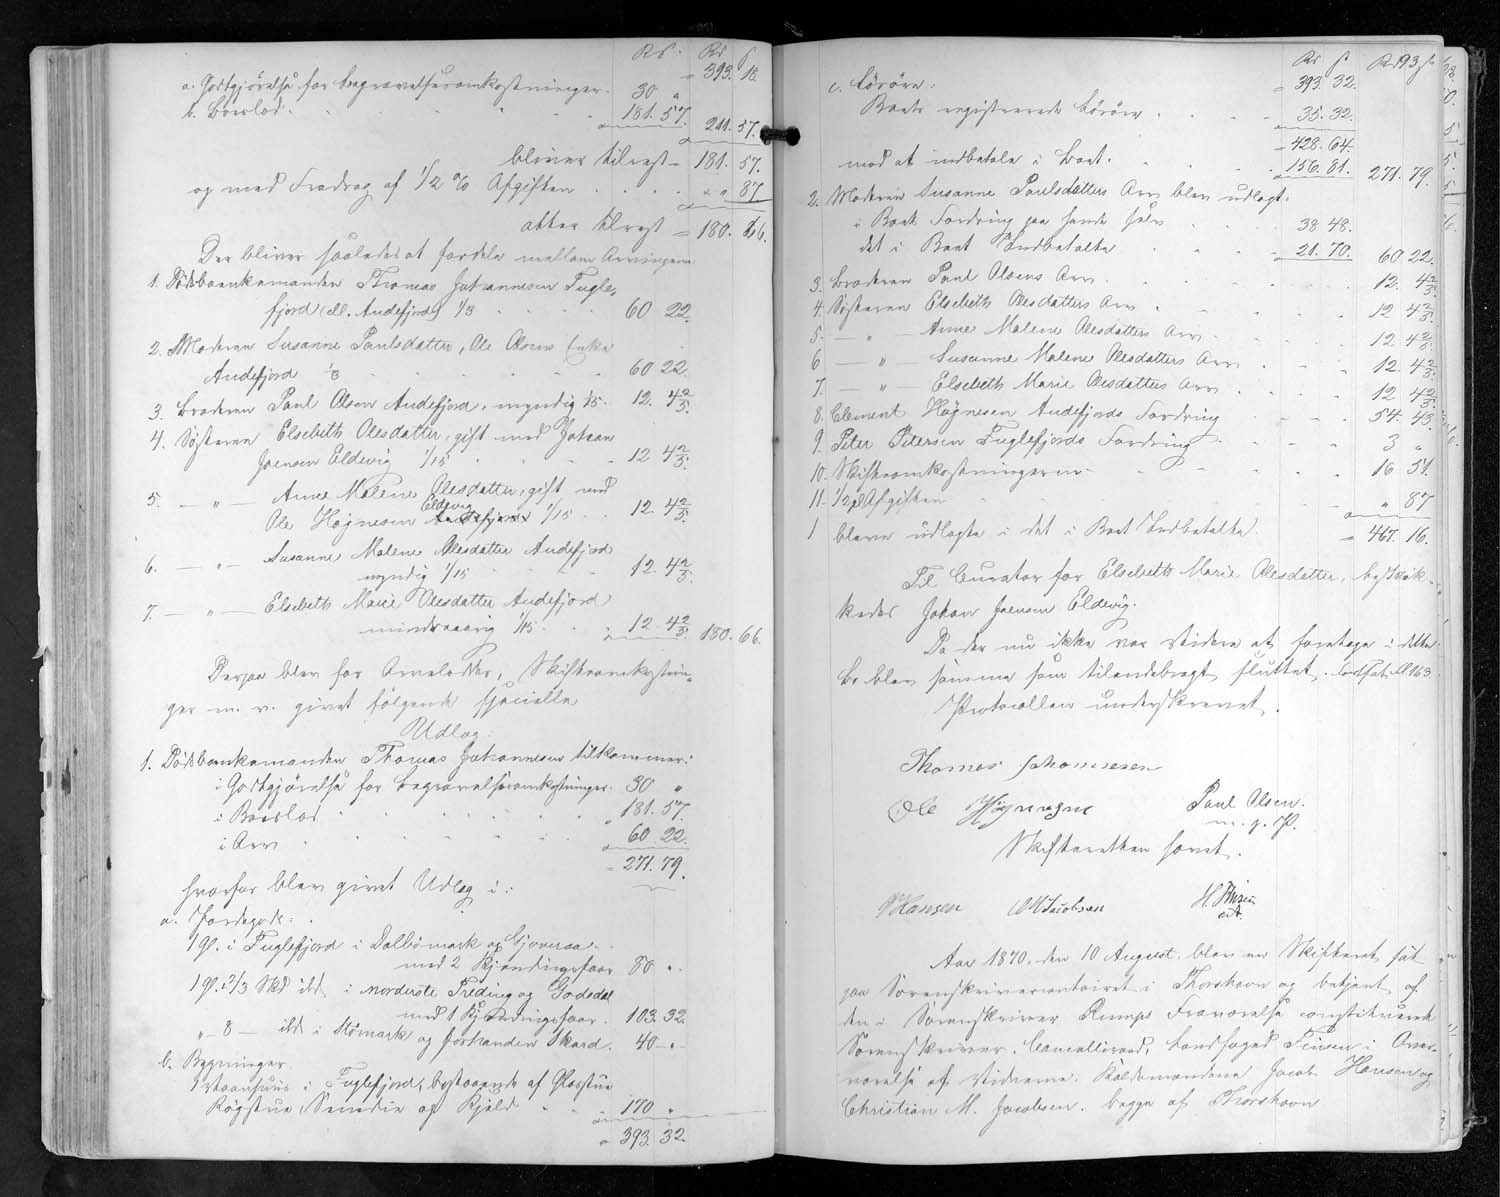 Rd. Rd ß
393. 18.
a. Godtgjörelse for Begravelsesomkostninger. 30 "
b. Boeslod. 181. 57. 211. 57.
bliver tilrest = 181. 57.
og med Fradrag af 1/2 % Afgiften " " 87
atter tilrest = 180. 66.
Der bliver saaledes at fordele mellem Arvingerne
1. Dödsboenkemanden Thomas Johannesen Fugle-
fjord (ell. Andefjord) 1/3 60 22.
2. Moderen Susanne Poulsdatter, Ole Olsens Enke
Andefjord 1/3 60 22
3. Broderen Poul Olsen Andefjord, myndig 1/15. 12. 4 2/5.
4. Söfteren Elsebeth Olesdatter, gift med Johan
Joensen Eldevig 1/15 12 4 2/5.
5. — " — Anne Malene Olesdatter, gift med
Ole Högnesen Eldevig Andefjord 1/15 12. 4 2/5.
6. — " — Susanne Malene Olesdatter Andefjord
myndig 1/15 12. 4 2/5.
7. — " — Elsebeth Marie Olesdatter Andefjord
mindreaarig 1/15 12. 4 2/5. 180. 66.
Derpaa blev for Arvelodder, Skifteomkostnin-
ger m. v. givet fölgende specielle
Udlæg:
1. Dödsboenkemanden Thomas Johannesen tilkommer:
i Godtgjörelse for Begravelsesomkostninger. 30 "
i Boeslod 181. 57.
i Arv 60 22.
271. 79.
hvorfor blev givet Udlæg i:
a. Jordegods:
1 gl. i Fuglefjord i Dalbömark og Gjoveraa
med 2 Kjendingsfaar 80 "
1 gl. 2 2/3 Skd ibd i Norderste Freding og Godsdal
med 1 Kjendingsfaar. 103. 32.
" 8 — ibd i Stömark og forhanden Skard. 40 "
b. Bygninger.
1 Vaanhuus i Fuglefjord, bestaaende af Glasstue
Rögstue, Senedie og Kjeld 170 "
393. 32.
Rd ß Rd 93 ß
393. 32.
c. Lösöre:
Boets registrerede Lösöre 35. 32.
428. 64.
mod at indbetale i Boet. 156. 81. 271. 79.
2. Moderen Susanne Poulsdatters Arv blev udlagt:
i Boets Fordring paa hende selv 38 48.
det i Boet Indbetalte 21. 70. 60 22.
3. Broderen Poul Olsens Arv 12. 4 2/5.
4. Söfteren Elsebeth Olesdatters Arv 12 4 2/5.
5. — " — Anne Malene Olesdatters Arv 12 4 2/5.
6 — " — Susanne Malene Olesdatters Arv 12. 4 2/5.
7. — " — Elsebeth Marie Olesdatters Arv 12 4 2/5.
8. Clement Högnesen Andefjords Fordring 54. 43.
9. Peter Petersen Fuglefjords Fordring 3 "
10. Skifteomkostningerne 16 51.
11. 1/2 % Afgiften " 87
1 bleve udlagte i det i Boet Indbetalte. 467. 16.
Til Curator for Elsebeth Marie Olesdatter, beskik-
kedes Johan Joensen Eldevig.
Da der nu ikke var Videre at foretage i dette
Bo blev samme som tilendebragt sluttet.
Protocollen underskrevet.
Thomas Johannesen
Ole Högnesen Poul Olsen.
m. f. P.
Skifteretten hævet.
J Hansen CM Jacobsen H. Finsen
cst.
Aar 1870. den 10 August, blev en Skifteret sat
paa Sorenskrivercontoiret i Thorshavn og betjent af
den i Sorenskriver Rumps Fraværelse constituerede
Sorenskriver, Cancelliraad, Landfoged Finsen i Over-
værelse af Vidnerne. Kaldsmændene Jacob Hansen og
Christian M. Jacobsen. begge af Thorshavn